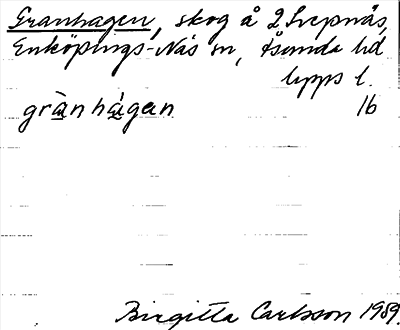 Granhagen, skog å 2 Svepnäs,
Enköpings-Näs sn, Åsunda hd
Upps l.
grànhágan 16
Birgitta Carlsson 1989